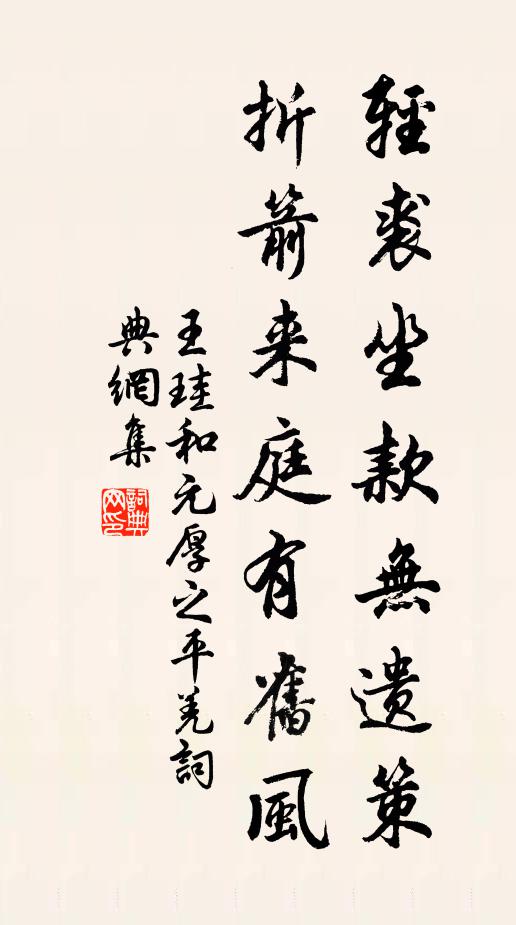 輕裘坐款無遺策
折箭来庭有舊風
王珪和元厚之平羌詞
典網集
詞典網印